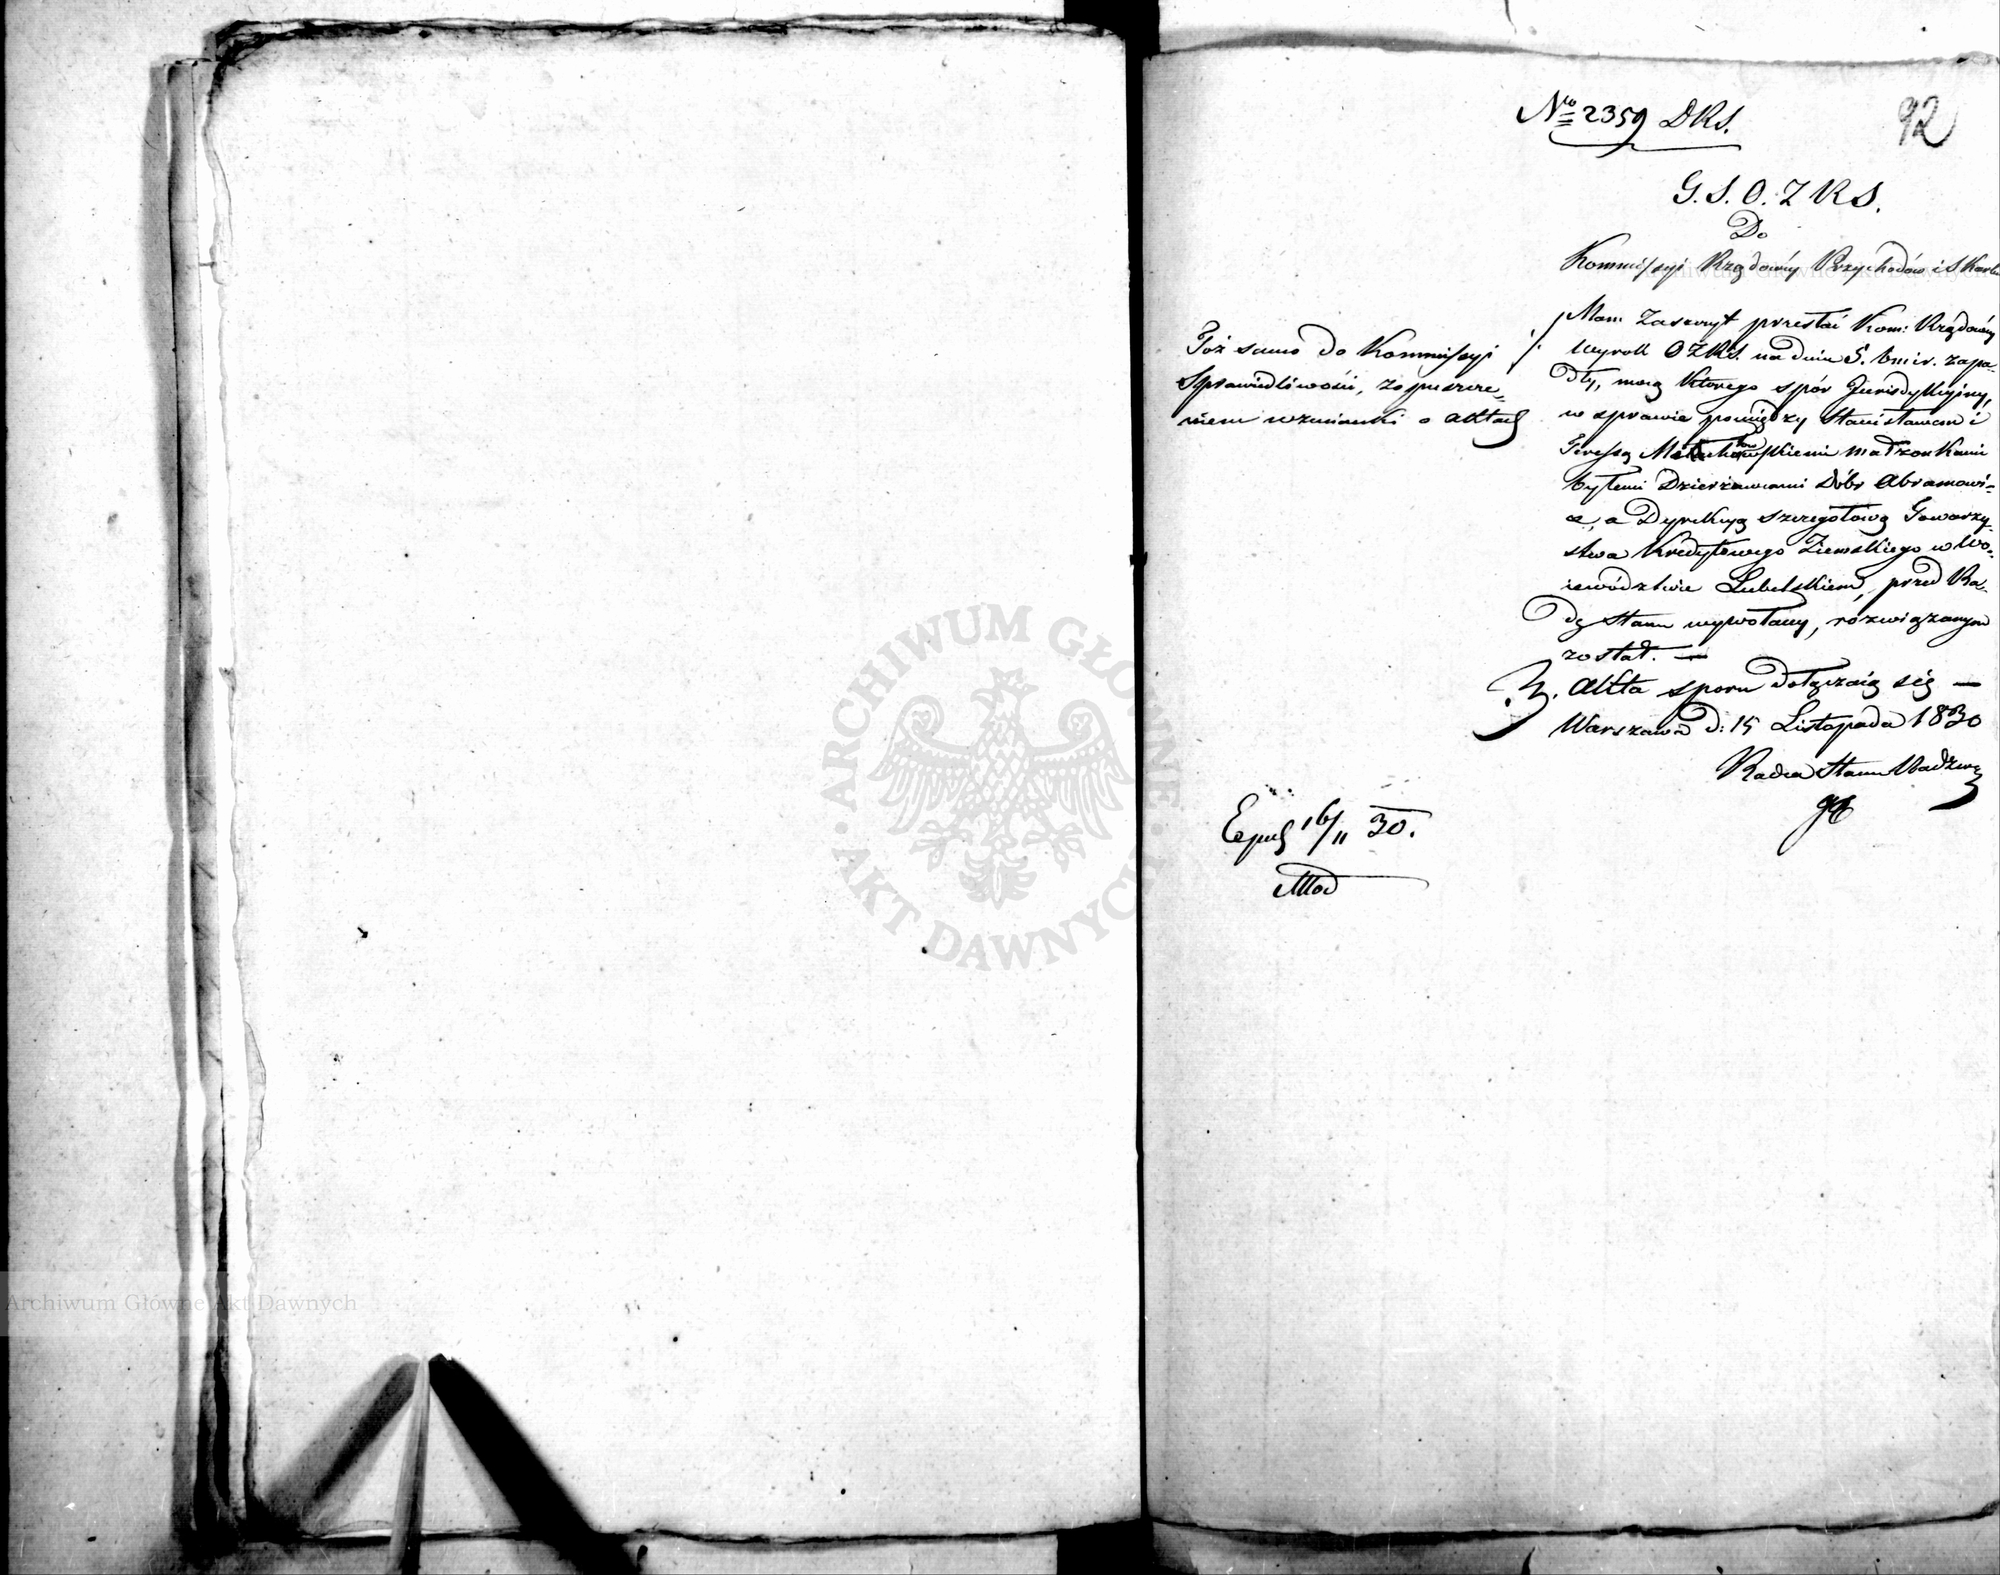 Nro 2359 DKS.
92
G. S. O. Z R S.
Do
Kommissyi Rządowéy Przychodów i Skarbu
Mam Zaszczyt przesłać Kom: Rządowéy
Wyrok O Z R S. na dniu 5. b m i r. zapa-
dły, mocą którego spór Jurisdykcyjny,
w sprawie pomiędzy Stanisławem i
Teressą małżonkami
byłemi Dzierżawcami Dóbr Abramowi-
cz, a Dyrekcyą szczegółową Towarzy-
stwa Kredytowego Ziemskiego w Wo-
iewództwie Lubelskiem, przed Ra-
dę Stanu wywołany, rozwiązanym
został. —
Akta sporu dołączaią się —
Warszawa d: 15 Listopada 1830
Radca Stanu
Toż samo do Kommissyi
Sprawiedliwości, z opuszcze-
niem wzmianki o aktach
Exped 16/11 30.
Archiwum Główne Akt Dawnych
ARCHIWUM GŁÓWNE
AKT DAWNYCH